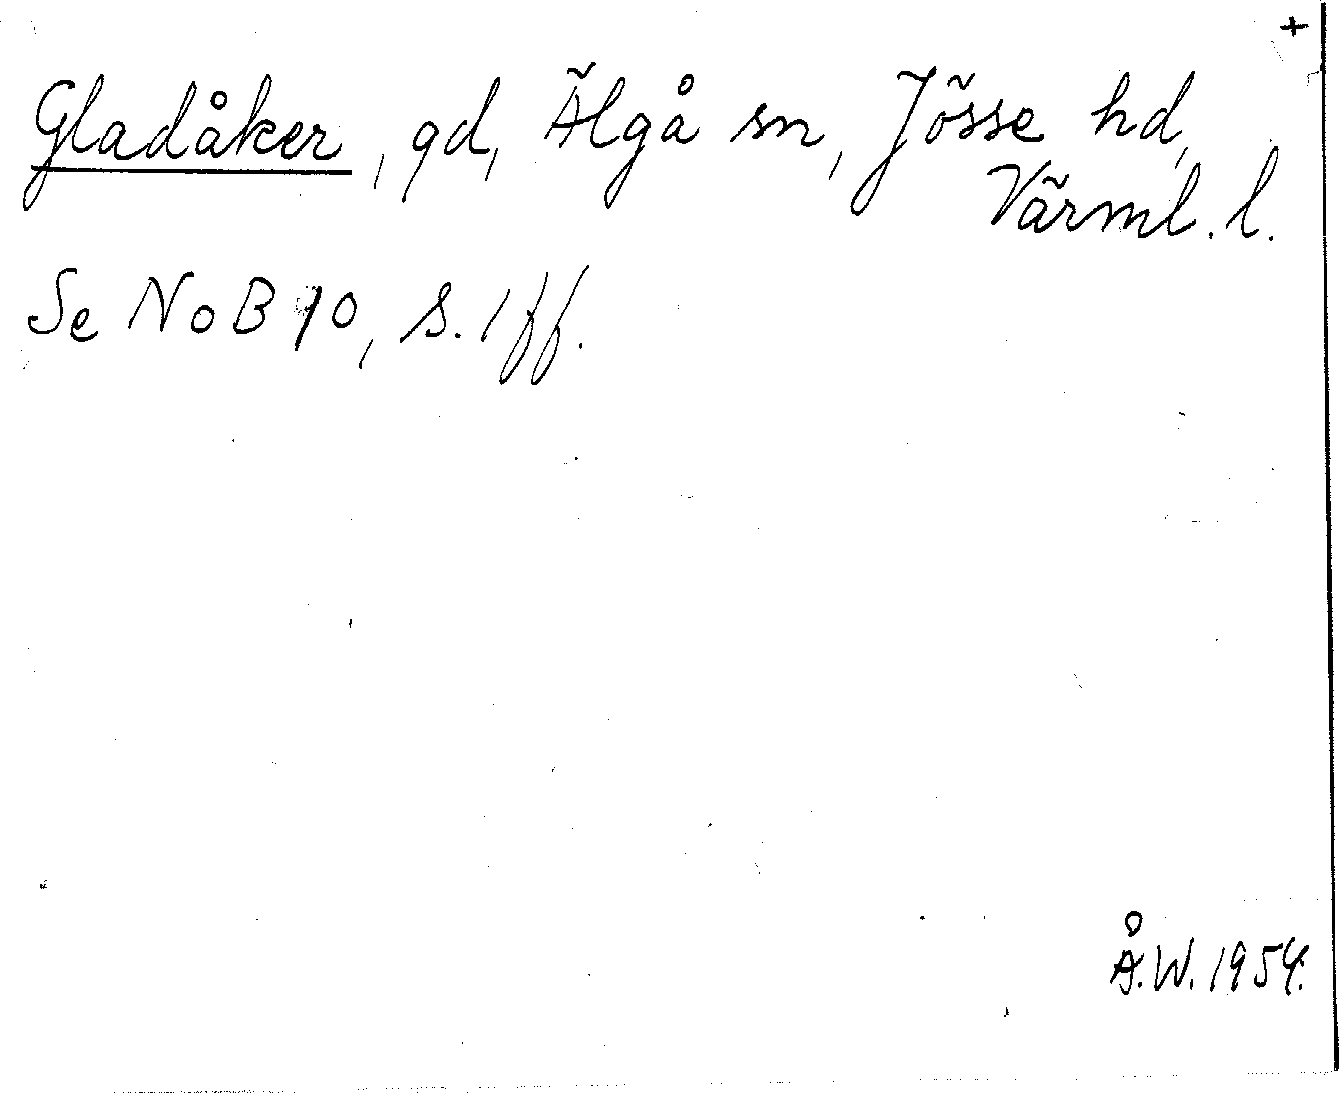 +
Gladåker, gd, Älgå sn, Jösse hd,
Värml. l.
Se NoB 10, s. 1 ff.
Å.W. 1954.